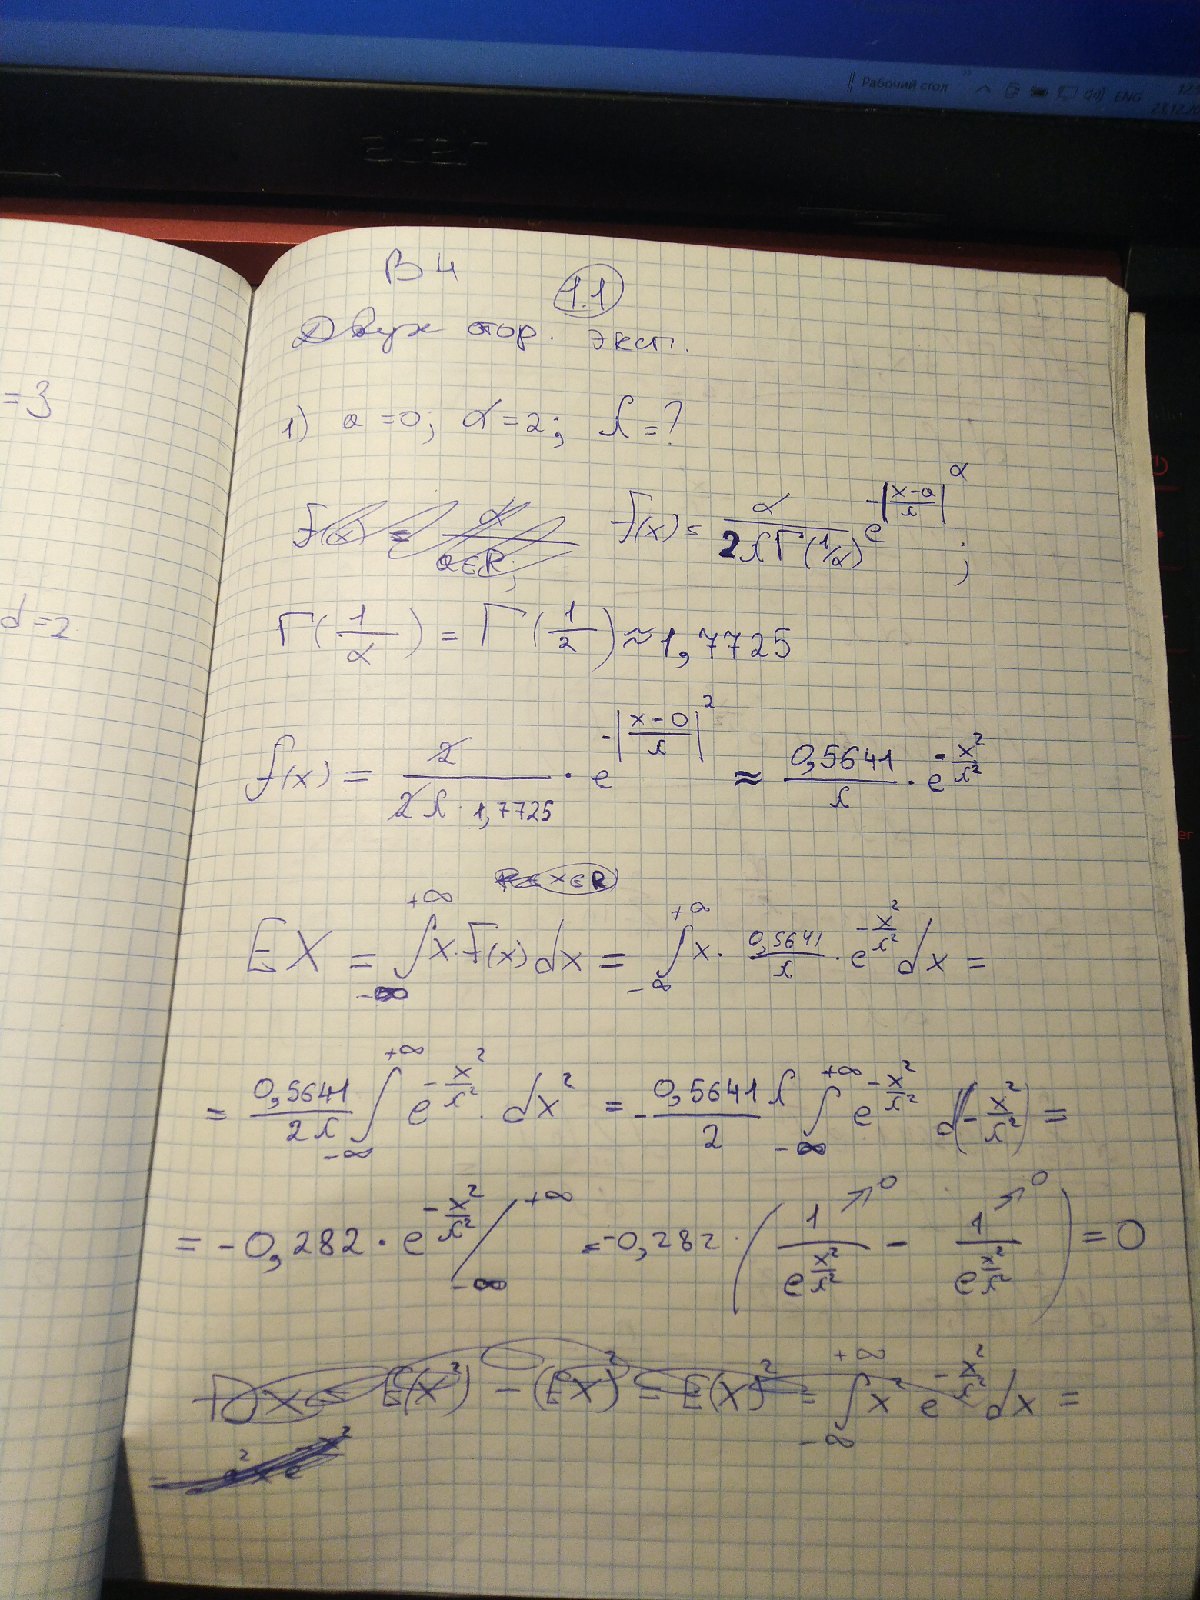 Рабочий стол ENG
acer
= 3
d = 2
В 4
1.1
Двух стор. эксп.
1) a = 0; α = 2; λ = ?
f(x) = α / a∈R;
f(x) = α / (2λΓ(1/α)) e^(-|(x-a)/λ|^α);
Γ(1/α) = Γ(1/2) ≈ 1,7725
f(x) = 2 / (2λ · 1,7725) · e^(-|(x-0)/λ|^2) ≈ 0,5641/λ · e^(-x²/λ²)
x∈R
EX = ∫_{-∞}^{+∞} x · f(x) dx = ∫_{-∞}^{+∞} x · 0,5641/λ · e^(-x²/λ²) dx =
= 0,5641/(2λ) ∫_{-∞}^{+∞} e^(-x²/λ²) · dx² = - 0,5641λ/2 ∫_{-∞}^{+∞} e^(-x²/λ²) d(-x²/λ²) =
= -0,282 · e^(-x²/λ²) /_{-∞}^{+∞} = -0,282 · (1/e^(x²/λ²) → 0 - 1/e^(x²/λ²) → 0) = 0
DX = E(X²) - (EX)² = E(X)² = ∫_{-∞}^{+∞} x² e^(-x²/λ²) dx =